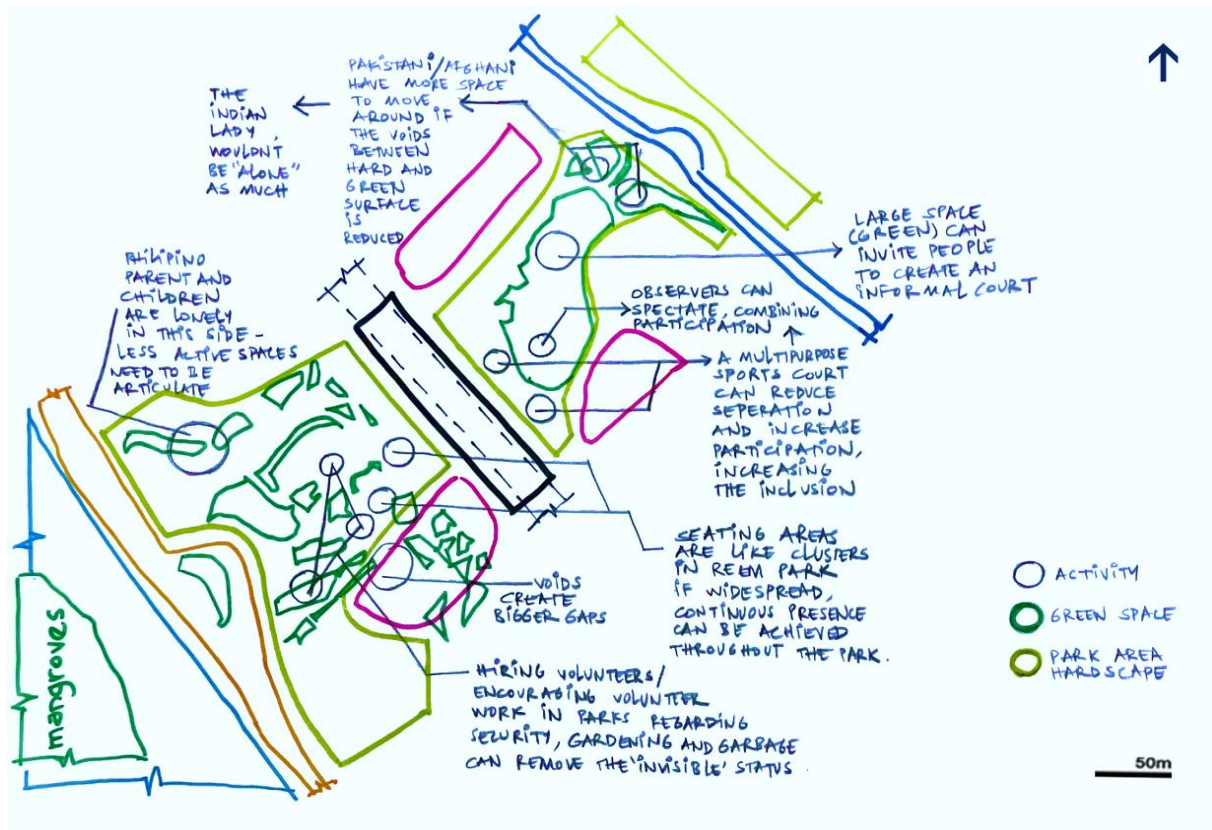 THE
INDIAN
LADY,
WOULDNT
BE "ALONE"
AS MUCH
PAKISTANI/AFGHANI
HAVE MORE SPACE
TO MOVE
AROUND IF
THE VOIDS
BETWEEN
HARD AND
GREEN
SURFACE
IS
REDUCED
PHILIPINO
PARENT AND
CHILDREN
ARE LONELY
IN THIS SIDE -
LESS ACTIVE SPACES
NEED TO BE
ARTICULATE
LARGE SPACE
(GREEN) CAN
INVITE PEOPLE
TO CREATE AN
INFORMAL COURT
OBSERVERS CAN
SPECTATE, COMBINING
PARTICIPATION
A MULTIPURPOSE
SPORTS COURT
CAN REDUCE
SEPERATION
AND INCREASE
PARTICIPATION,
INCREASING
THE INCLUSION
SEATING AREAS
ARE LIKE CLUSTERS
IN REEM PARK
IF WIDESPREAD,
CONTINUOUS PRESENCE
CAN BE ACHIEVED
THROUGHOUT THE PARK.
VOIDS
CREATE
BIGGER GAPS
HIRING VOLUNTEERS/
ENCOURAGING VOLUNTEER
WORK IN PARKS REGARDING
SECURITY, GARDENING AND GARBAGE
CAN REMOVE THE 'INVISIBLE' STATUS.
mangroves
ACTIVITY
GREEN SPACE
PARK AREA
HARDSCAPE
50m